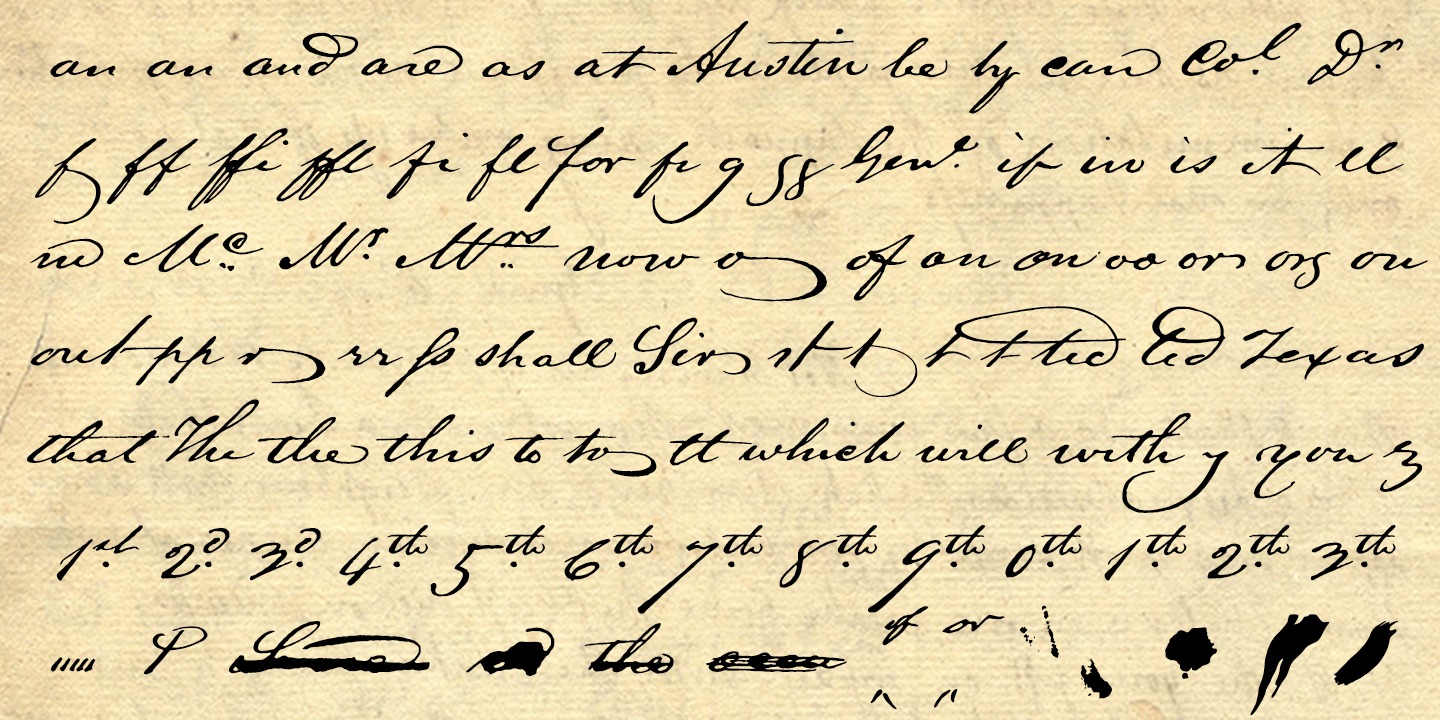 an an and are as at Austin be by can Col. Dr.
f ff ffi ffl fi fl for fr g gg Genl. if in is it ll
m Mc. Mr. Mrs. now o of on on oo or org ou
out pp r rr ss shall Sir st t t t ted ted Texas
that The the this to to tt which will with y you z
1st. 2d. 3d. 4th. 5th. 6th. 7th. 8th. 9th. 0th. 1th. 2th. 3th.
of or
P the
" "